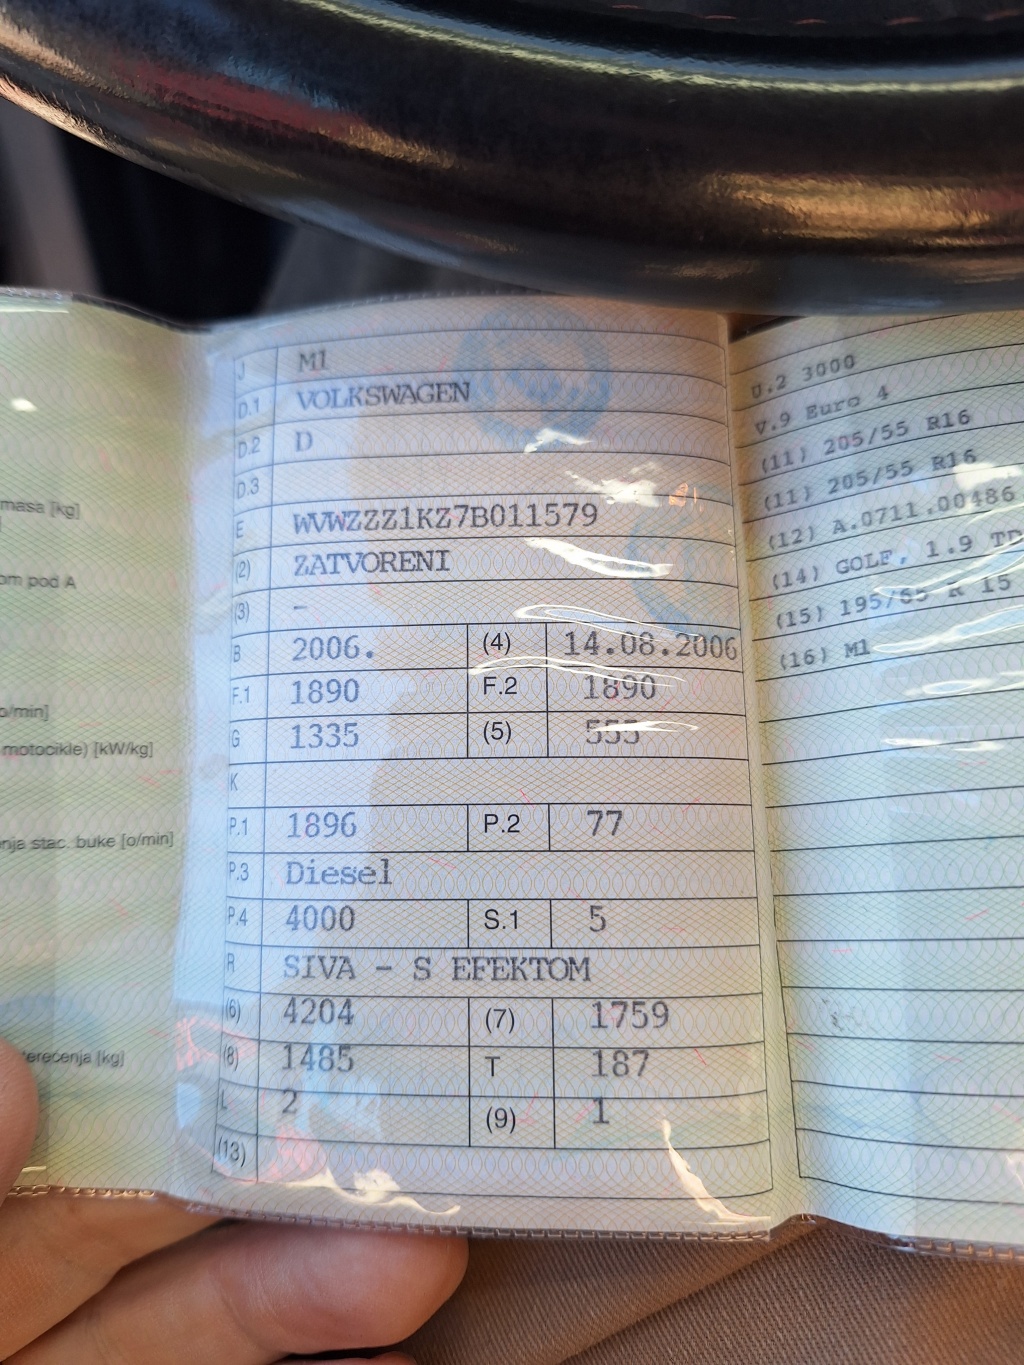 masa [kg]
om pod A
o/min]
motocikle) [kW/kg]
nja stac. buke [o/min]
terećenja [kg]
J M1
D.1 VOLKSWAGEN
D.2 D
D.3
E WVWZZZ1KZ7B011579
(2) ZATVORENI
(3) –
B 2006. (4) 14.08.2006
F.1 1890 F.2 1890
G 1335 (5) 555
K
P.1 1896 P.2 77
P.3 Diesel
P.4 4000 S.1 5
R SIVA - S EFEKTOM
(6) 4204 (7) 1759
(8) 1485 T 187
L 2 (9) 1
(13)
U.2 3000
V.9 Euro 4
(11) 205/55 R16
(11) 205/55 R16
(12) A.0711.00486
(14) GOLF, 1.9 TD
(15) 195/65 R 15
(16) M1